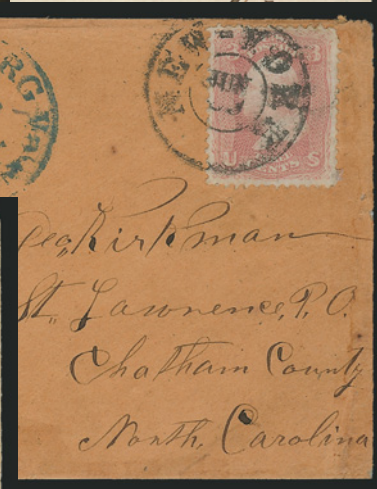 RG Va
NEW-YORK
JUN
3
U S
CENTS
Geo, Kirkman
St, Lawrence, P.O.
Chatham County
North, Carolina